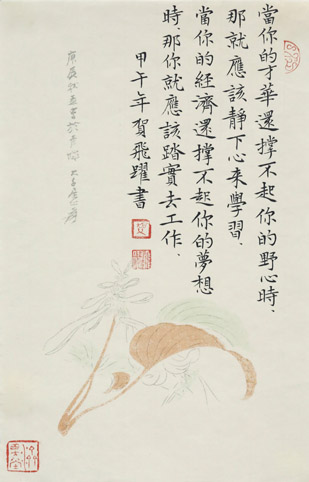 當你的才華還撐不起你的野心時、
那就應該靜下心來學習、
當你的經濟還撐不起你的夢想
時、那你就應該踏實去工作、
甲午年賀飛躍書